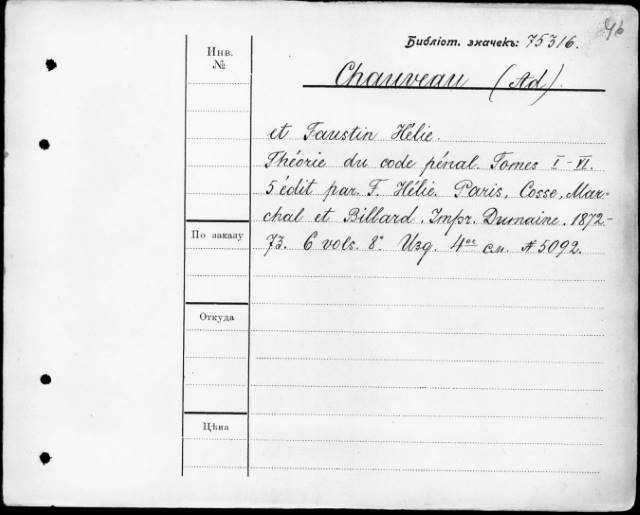 Библіот. значекъ: 75316.
Инв.
№
Chauveau (Ad).
et Faustin Hélie.
Théorie du code pénal. Tomes I-VI.
5 édit par F. Hélie. Paris, Cosse, Mar-
chal et Billard, Impr. Dumaine. 1872-
73. 6 vols. 8°. Изд. 4ое см. № 5092.
По заказу
Откуда
Цѣна